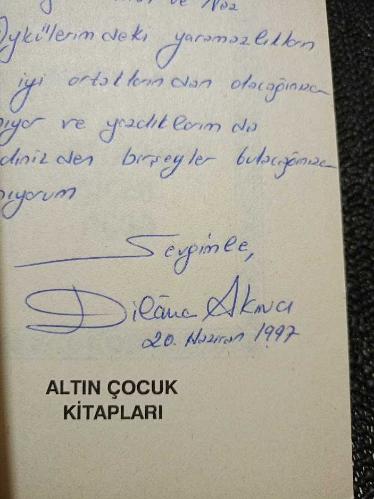 ve Naz
Öykülerimdeki yaramazlıkların
iyi ortaklarından olacağınıza
ve yazdıklarım da
birşeyler bulacağınıza
Sevgimle,
Dilâra Akıncı
20. Haziran 1997
ALTIN ÇOCUK
KİTAPLARI